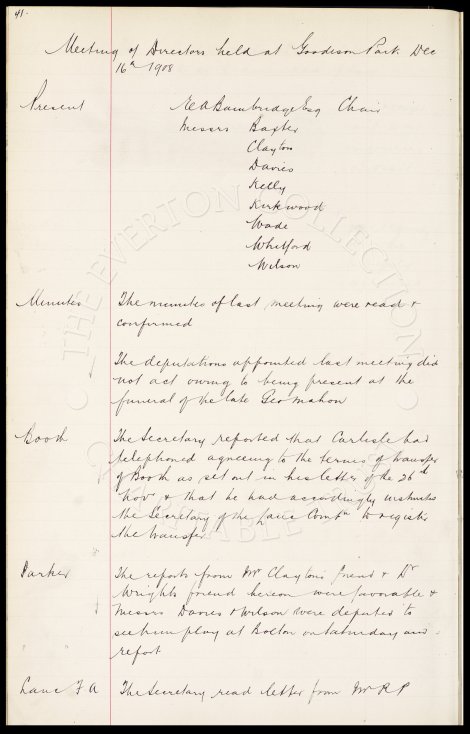 41.
Meeting of Directors held at Goodison Park Dec
16th 1908
Present E A Bainbridge Esq Chair
Messrs Baxter
Clayton
Davies
Kelly
Kirkwood
Wade
Whitford
Wilson
Minutes The minutes of last meeting were read &
confirmed
The deputations appointed last meeting did
not act owing to being present at the
funeral of the late Geo Mahon
Booth The Secretary reported that Carlisle had
telephoned agreeing to the terms of transfer
of Booth as set out in his letter of the 26th
Nov & that he had accordingly
the Secretary of the Lanc Combn to register
the transfer.
Parker The reports from Mr Clayton's friend & Dr
Wrights friend hereon were favorable &
Messrs Davies & Wilson were deputed to
see him play at Bolton on Saturday and
report
Lanc F A The Secretary read letter from Mr R P
THE EVERTON COLLECTION